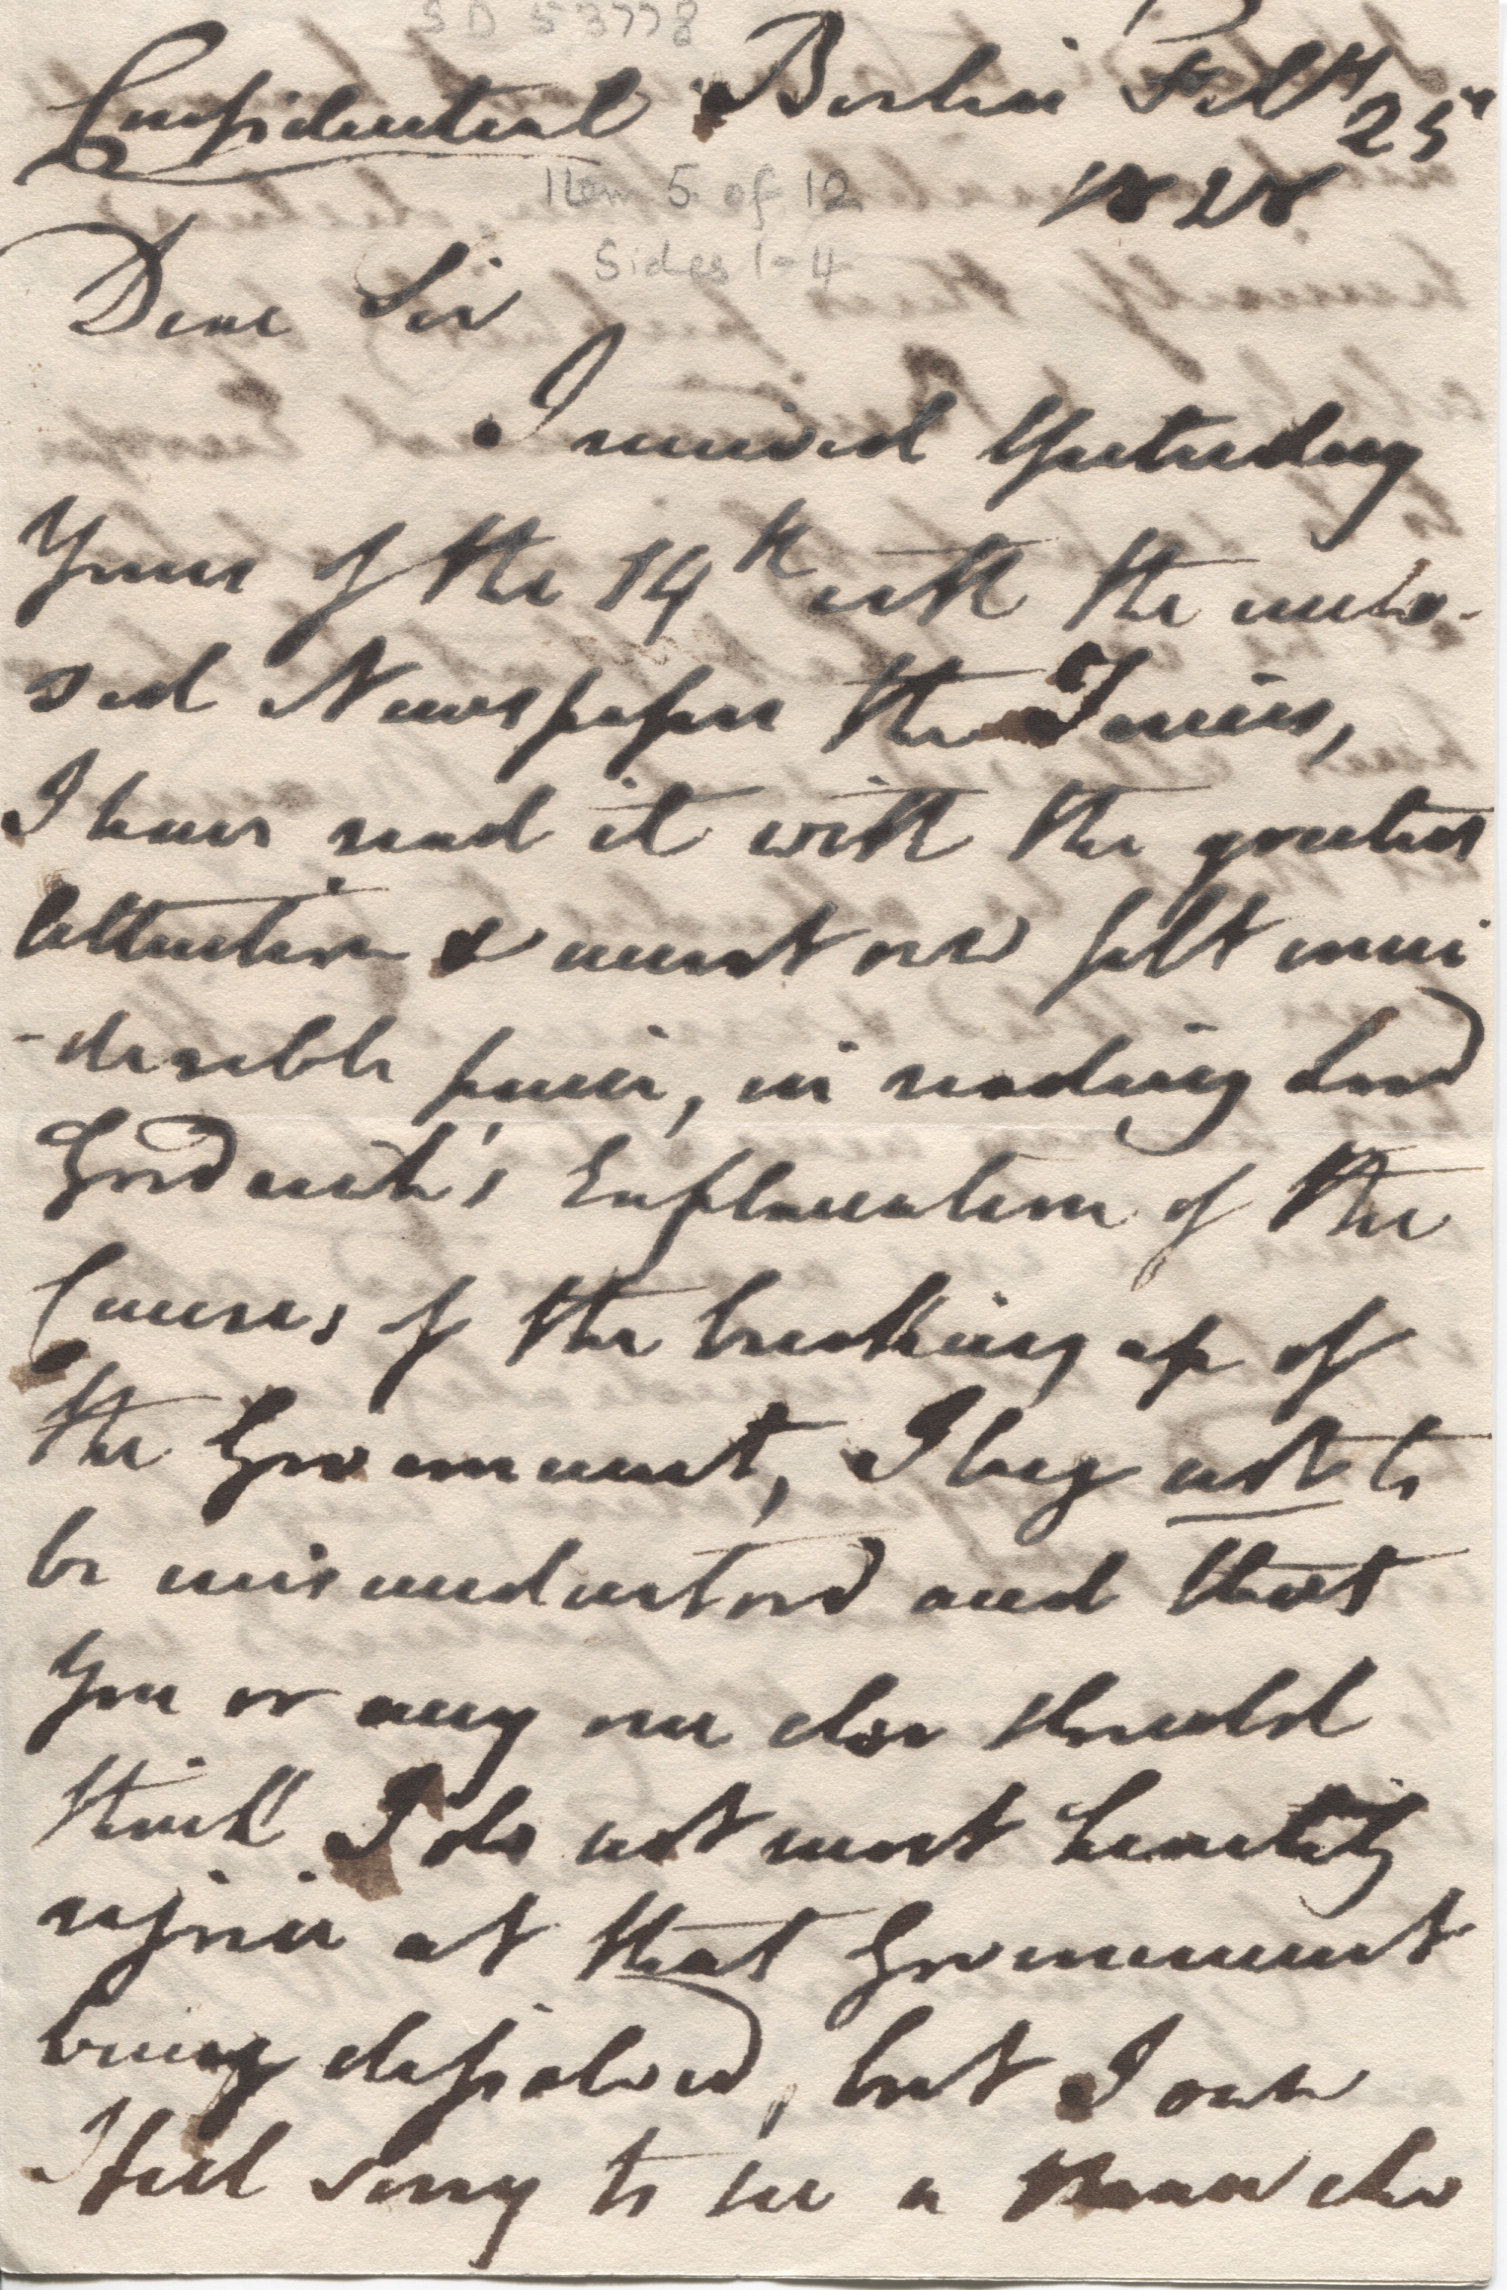 SD 53778
Confidential Berlin Feb 25th
1828
Item 5 of 12
Sides 1-4
Dear Sir
I received Yesterday
Yours of the 14th with the enclo-
sed Newspaper the Times,
I have read it with the greatest
Attention & must own felt consi
-derable pain, in reading Lord
Goodrich's Explanation of the
Causes of the breaking up of
the Government, I beg not to
be misunderstood and that
You or any one else should
think I do not most heartily
rejoice at that Government
being dissolved, but I own
I feel sorry to see a man who